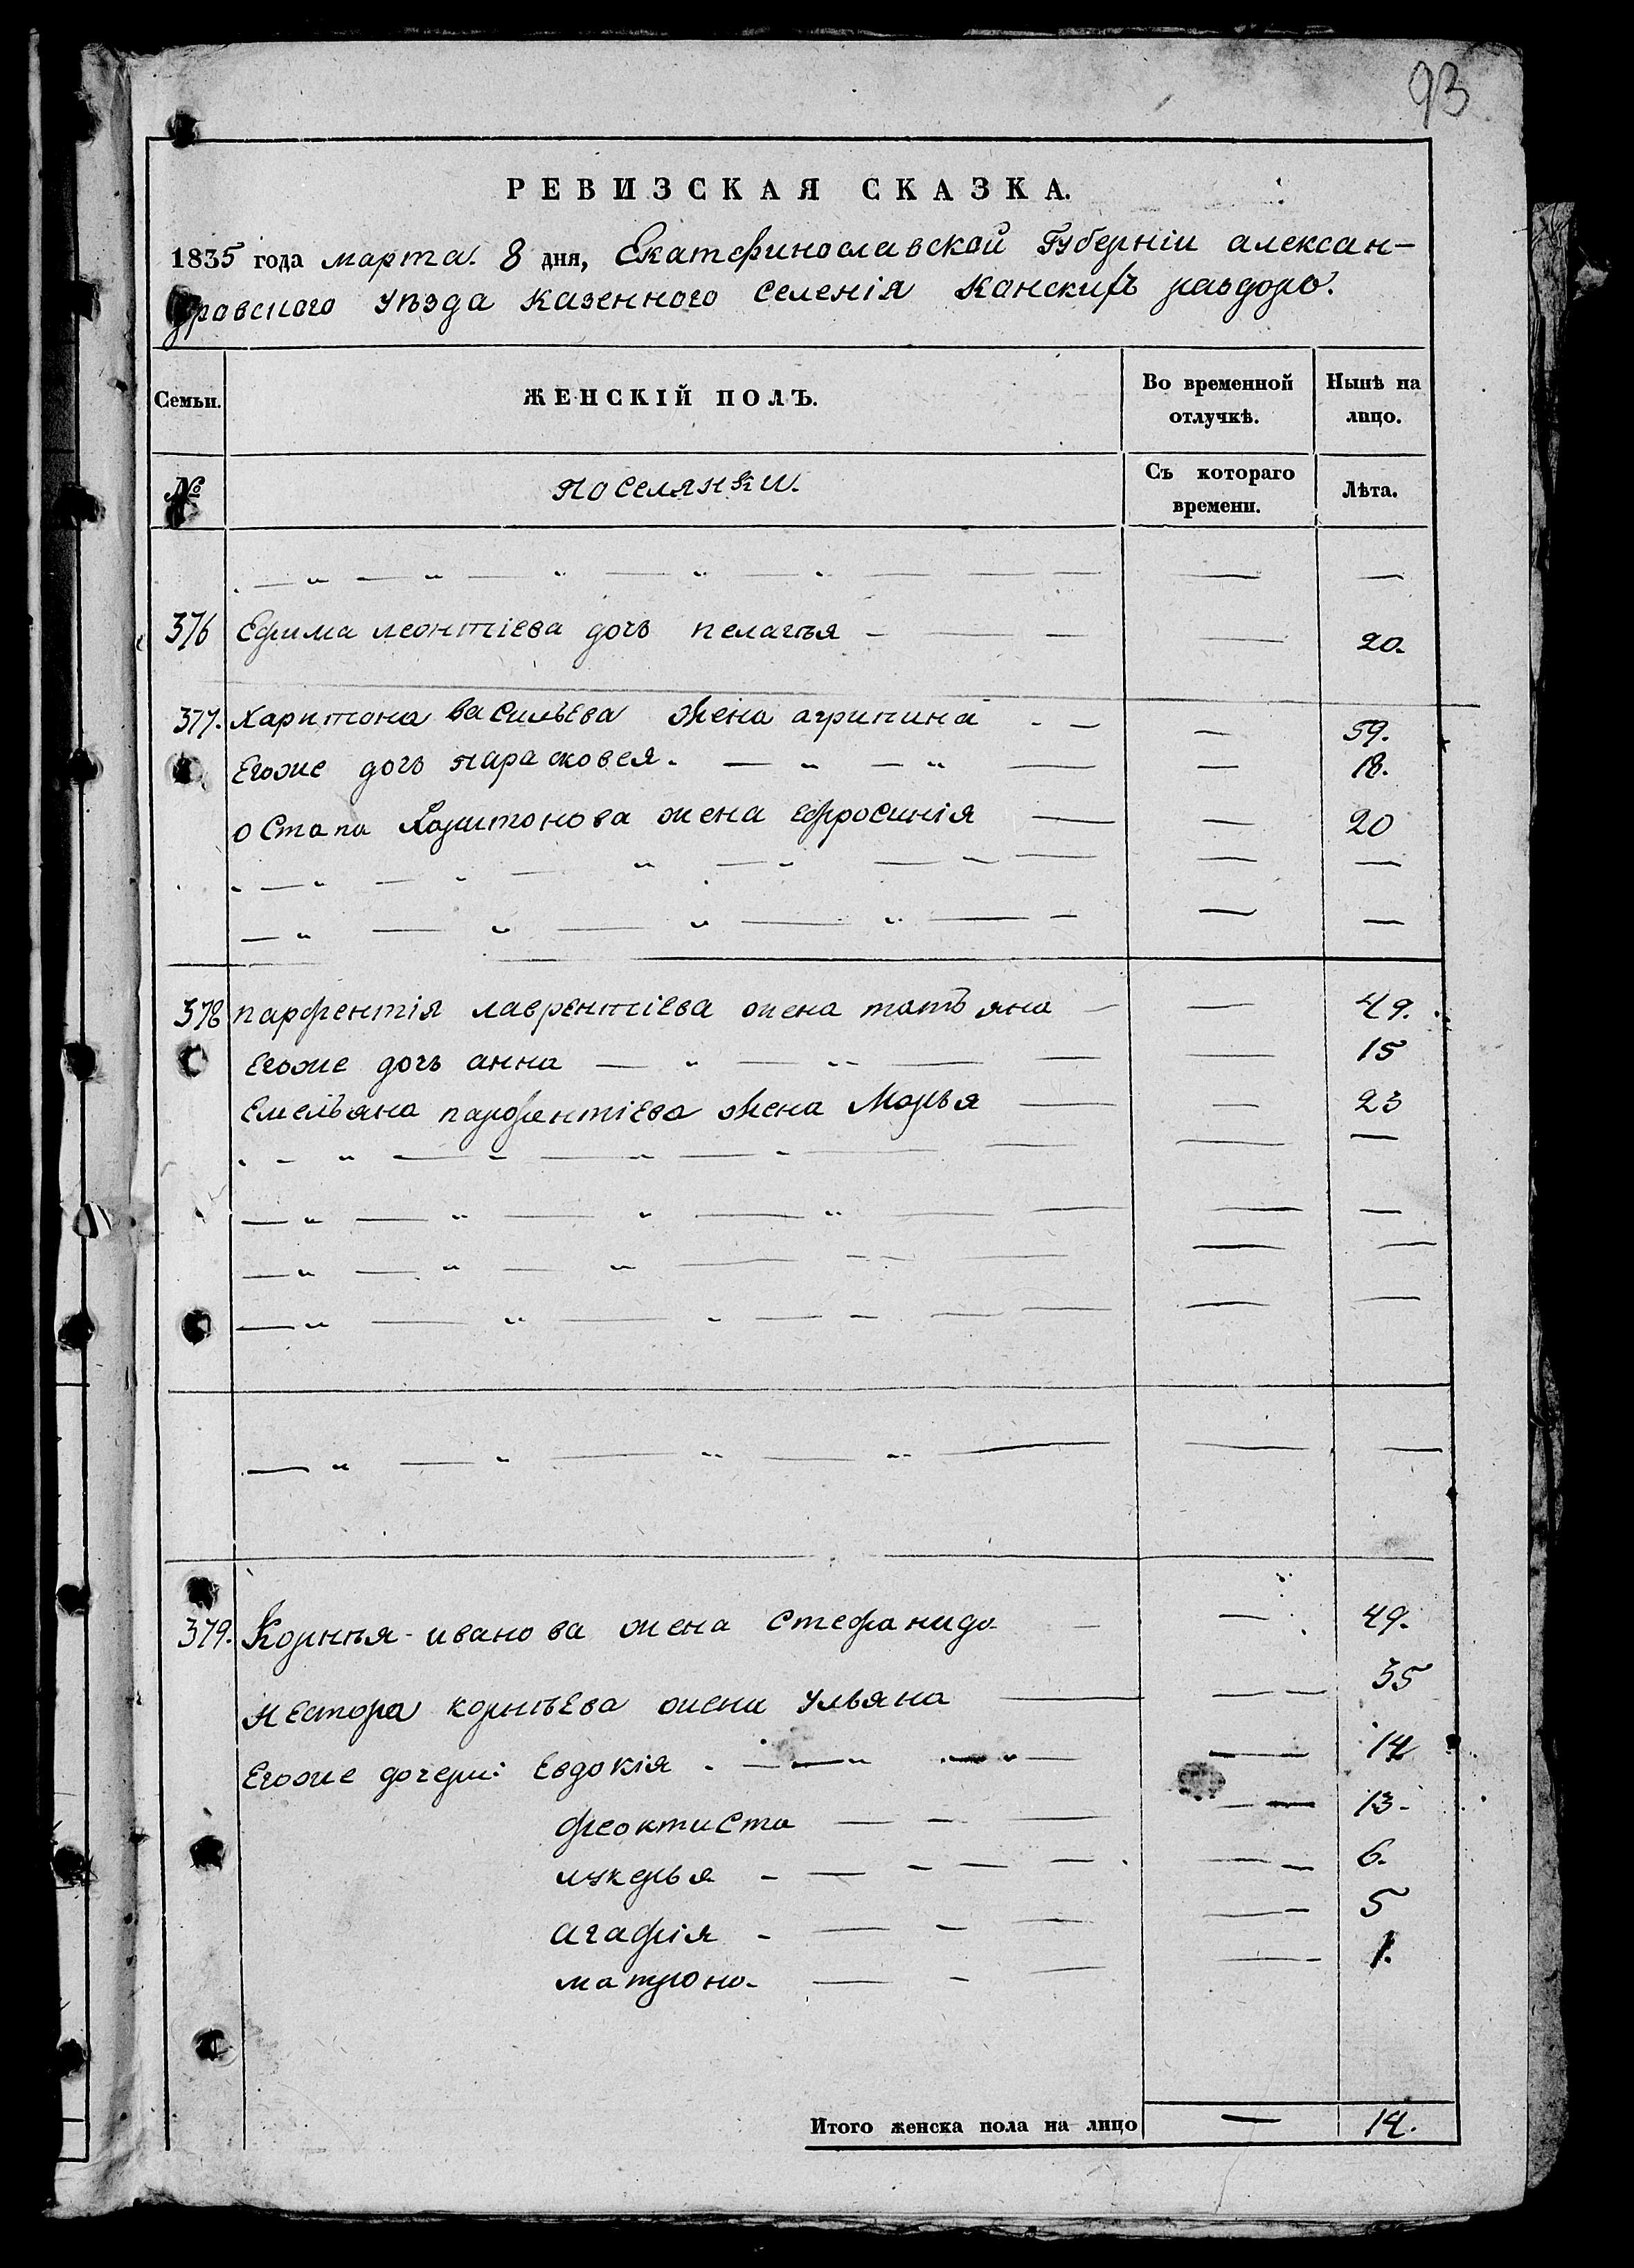 93
РЕВИЗСКАЯ СКАЗКА.
1835 года марта 8 дня, Екатеринославской Губерніи алексан-
дровского уѣзда казенного селенія Конскихъ раздоръ.
Семьи. ЖЕНСКІЙ ПОЛЪ. Во временной отлучкѣ. Нынѣ на лицо.
№ поселянки. Съ котораго времени. Лѣта.
376 Ефима леонтіева дочь пелагѣя — 20.
377. Харитона васильева жена агрипина — 59.
Егоже дочь парасковея. — 18.
остапа Харитонова жена ефросинія — 20
378 парфентія лаврентіева жена татьяна — 49.
Егоже дочь анна — 15
Емельяна парфентіева жена Марья — 23
379. Корнѣя иванова жена стефанида — 49.
нестора корнѣева жена ульяна — 35
Егоже дочери: Евдокія — 14
феоктиста — 13
лукерья — 6.
агафія — 5
матрона — 1.
Итого женска пола на лицо — 14.